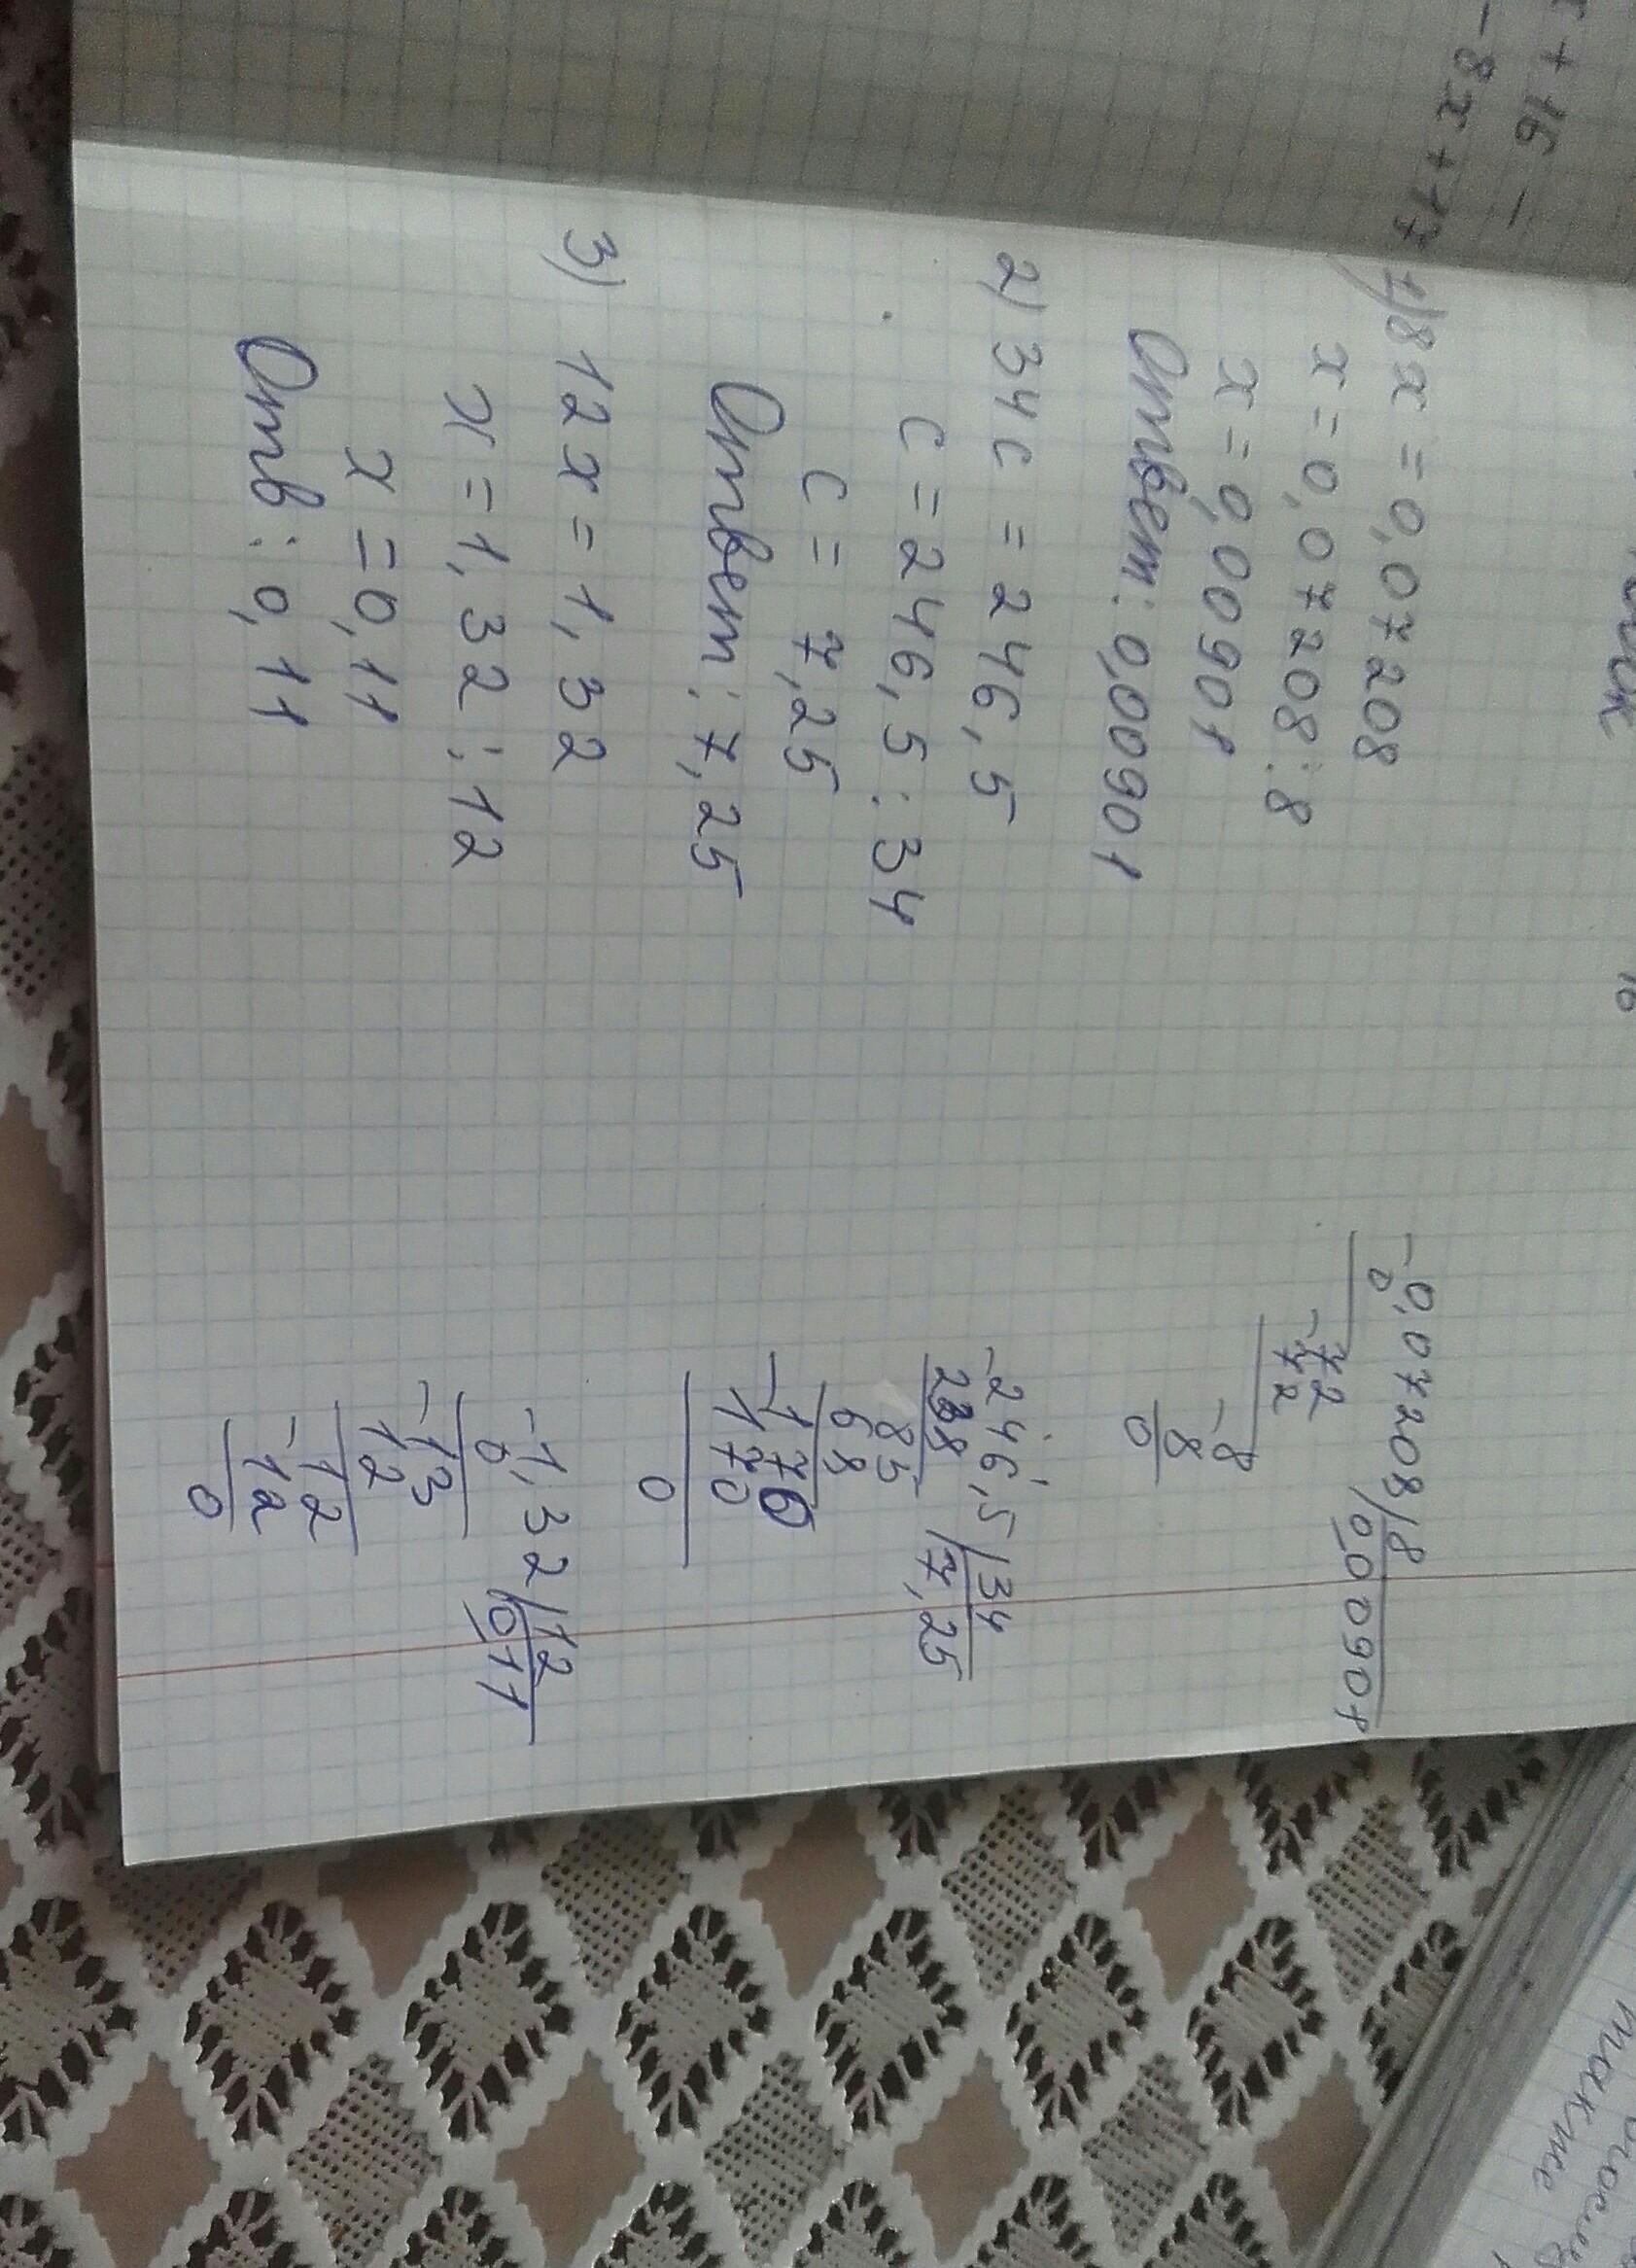 + 16 -
- 8x + 17
1) 8x = 0,07208
x = 0,07208 : 8
x = 0,00901
Ответ: 0,00901
2) 34c = 246,5
c = 246,5 : 34
c = 7,25
Ответ: 7,25
3) 12x = 1,32
x = 1,32 : 12
x = 0,11
Отв: 0,11
16
- 0,07208 | 8
0 0,00901
- 72
72
- 8
8
0
- 246,5 | 34
238 7,25
85
68
- 170
170
0
- 1,32 | 12
0 0,11
- 13
12
- 12
12
0
также